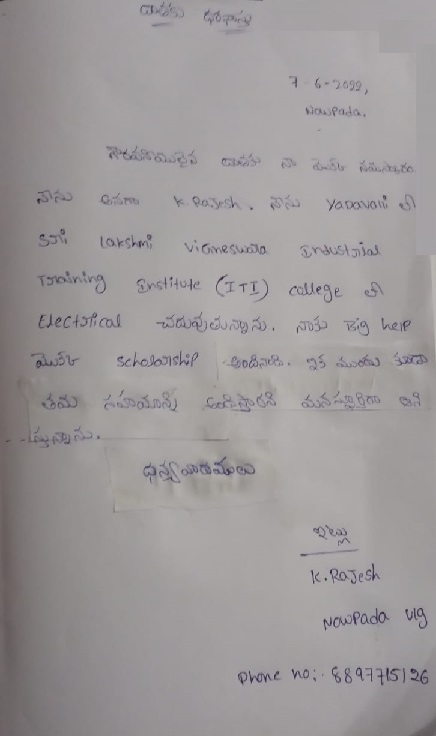 దాతకు ధరఖాస్తు
7-6-2022,
NowPada.
గౌరవనీయులైన దాతకు నా యొక్క నమస్కారం
నాను అనగా K.Rajesh. నాను Yadavalli లో
Sri Lakshmi Vigneswara Industrial
Training Institute (ITI) college లో
Electrical చదువుతున్నాను. నాకు Big help
యొక్క scholarship అందినది. ఇక ముందు కూడా
తమ సహాయాన్ని అందిస్తారని మనస్ఫూర్తిగా ఆశి
స్తున్నాను.
ధన్యవాదములు
ఇట్లు
K.Rajesh
NowPada vlg
Phone no:- 8897715126